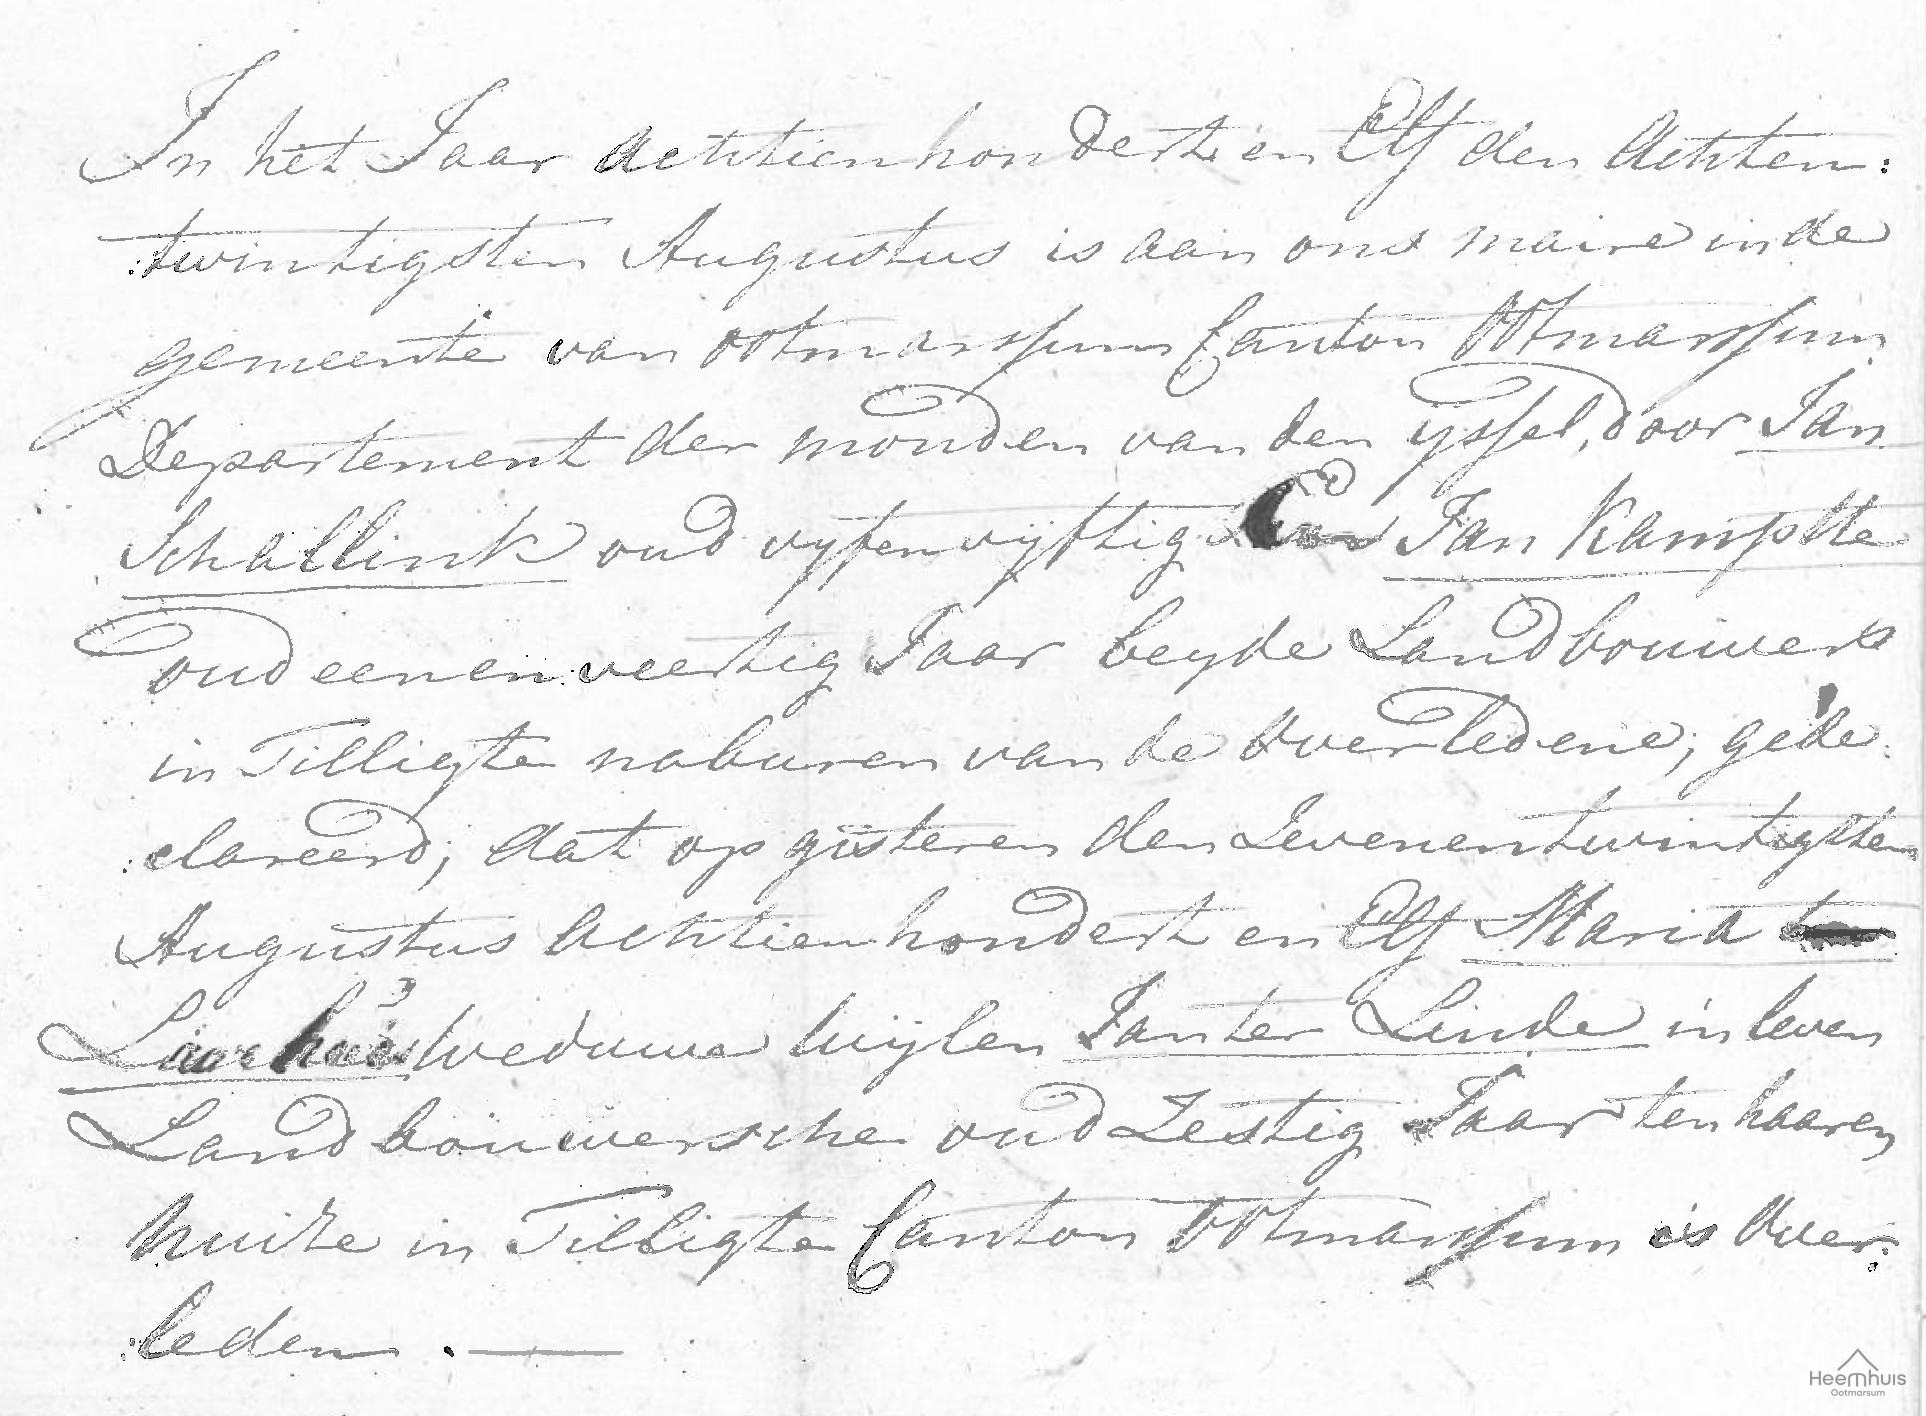 In het Jaar Achttien hondert en Elf den Achten:
:twintigsten Augustus is aan ons maire in de
gemeente van ootmarssum Canton Ootmarssum
Departement der monden van den yssel, door Jan
Schallink oud vyfenvijftig en Jan Kampste
oud eenen:veertig Jaar beyde Landbouwers
in Tilligte naburen van de Overledene; gede:
:clareerd; dat op gisteren den Zevenentwintigsten
Augustus Achttien hondert en Elf Maria
Laarhuis Weduwe wijlen Jan ter Linde in leven
Landbouwersche oud Zestig Jaar ten haaren
huize in Tilligte Canton Ootmarssum is Over:
:leden. —
Heemhuis
Ootmarsum